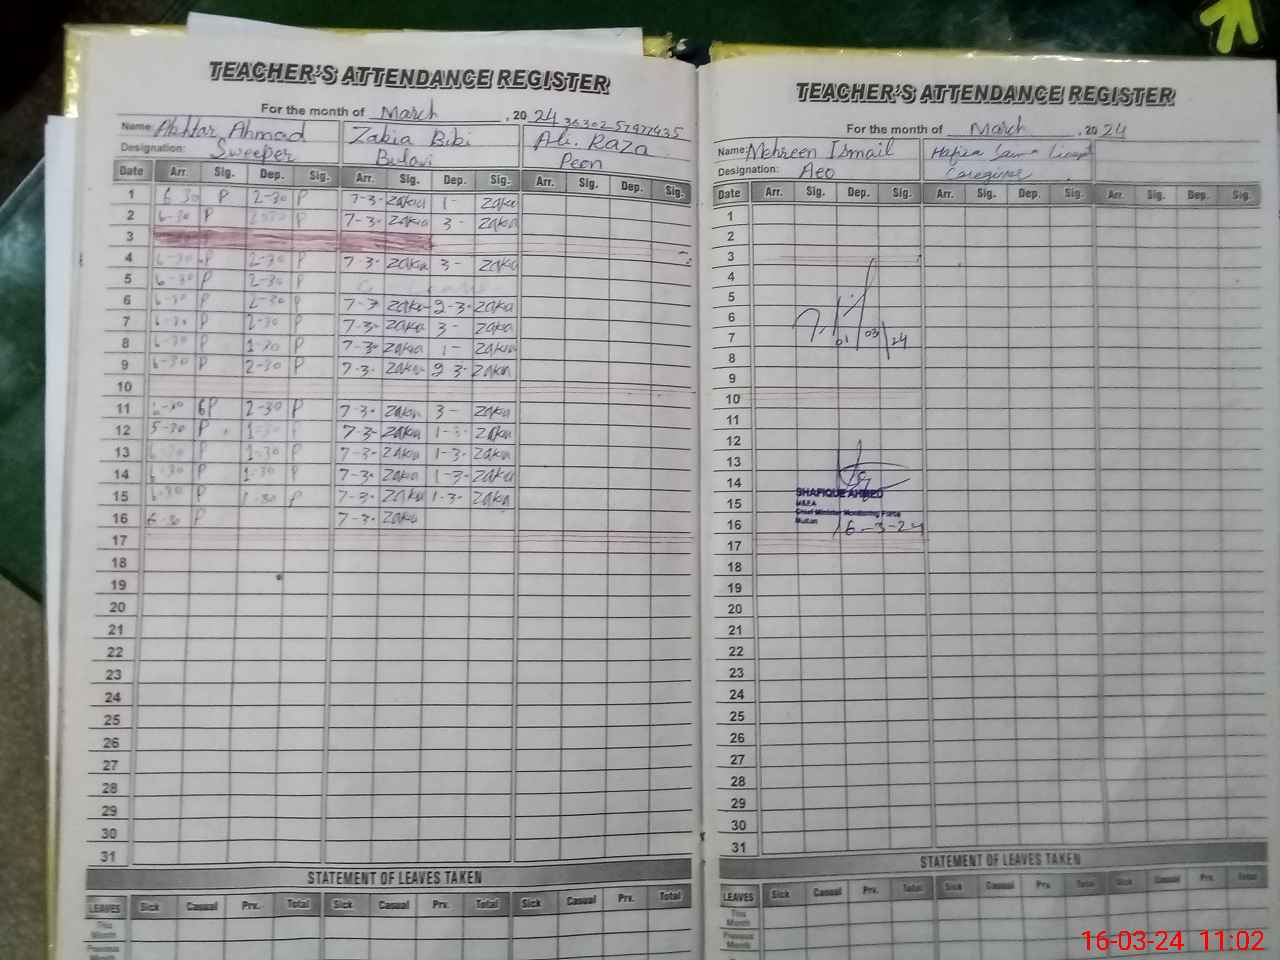 TEACHER'S ATTENDANCE REGISTER
For the month of March, 2024 36302-57977435
Name: Akhtar Ahmad Zakia Bibi Ali Raza
Designation: Sweeper Bulavi Peon
Date Arr. Sig. Dep. Sig. Arr. Sig. Dep. Sig. Arr. Sig. Dep. Sig.
1 6-30 P 2-30 P 7-3- Zakia 1- Zaka
2 6-30 P P 7-3- Zakia 3- Zakia
3
4 6-30 P 2-30 P 7-3- Zakia 3- Zaka
5 6-30 P 2-30 P
6 6-30 P 2-30 P 7-3 Zaka 2-3- Zaka
7 6-30 P 2-30 P 7-3- Zaka 3- Zaka
8 6-30 P 1-30 P 7-3- Zakia 1- Zaka
9 6-30 P 2-30 P 7-3- Zaka 2 3- Zaka
10
11 P 2-30 P 7-3- Zaka 3- Zaka
12 5-30 P 7-3- Zaka 1-3- Zaka
13 P 1-30 P 7-3- Zaka 1-3- Zaka
14 6-30 P 1-30 P 7-3- Zaka 1-3- Zaka
15 6-30 P 1-30 P 7-3- Zaka 1-3- Zaka
16 6-30 P 7-3- Zaka
17
18
19
20
21
22
23
24
25
26
27
28
29
30
31
STATEMENT OF LEAVES TAKEN
LEAVES Sick Casual Prv. Total Sick Casual Prv. Total Sick Casual Prv. Total
This Month
Previous Month
TEACHER'S ATTENDANCE REGISTER
For the month of March, 2024
Name: Mehreen Ismail Hafiza
Designation: Aeo Caregiver
Date Arr. Sig. Dep. Sig. Arr. Sig. Dep. Sig. Arr. Sig. Dep. Sig.
1
2
3
4
5
6
7 01/03/24
8
9
10
11
12
13
14
SHAFIQUE AHMED
15 M&EA
Chief Minister Monitoring Force
16 Multan 16-3-24
17
18
19
20
21
22
23
24
25
26
27
28
29
30
31
STATEMENT OF LEAVES TAKEN
LEAVES Sick Casual Prv. Total Sick Casual Prv. Total Sick Casual Prv. Total
This Month
Previous Month
16-03-24 11:02